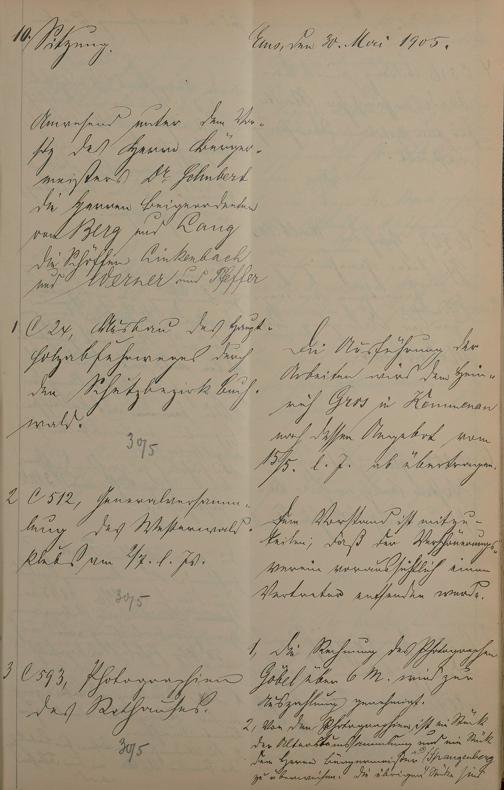 10. Sitzung.
Ems, den 30. Mai 1905.
Anwesend unter dem Vor-
sitz des Herrn Bürger-
meisters Dr. Schubert
die Herren Beigeordneten
von Berg und Lang
die Schöffen Linkenbach
und Werner und Pfeffer
1 C 24, Ausbau des Haupt-
holzabfuhrweges durch
den Schutzbezirk Buch-
wald.
30/5
Die Ausführung der
Arbeiten wird dem Hein-
rich Gros in Kemmenau
nach dessen Angebot vom
15/5. l. J. ab übertragen.
2 C 512, Generalversamm-
lung des Westerwald-
klubs am 2/7. l. Js.
30/5
Dem Vorstand ist mitzu-
teilen, daß der Verschönerungs-
verein voraussichtlich einen
Vertreter entsenden werde.
3 C 593, Photographien
des Rathauses.
30/5
1, Die Rechnung des Photographen
Göbel über 6 M. wird zur
Auszahlung genehmigt.
2, Von den Photographien ist ein Stück
der Altertumssammlung und ein Stück
dem Herrn Bürgermeister Spangenberg
zu überweisen. Die übrigen Stücke sind